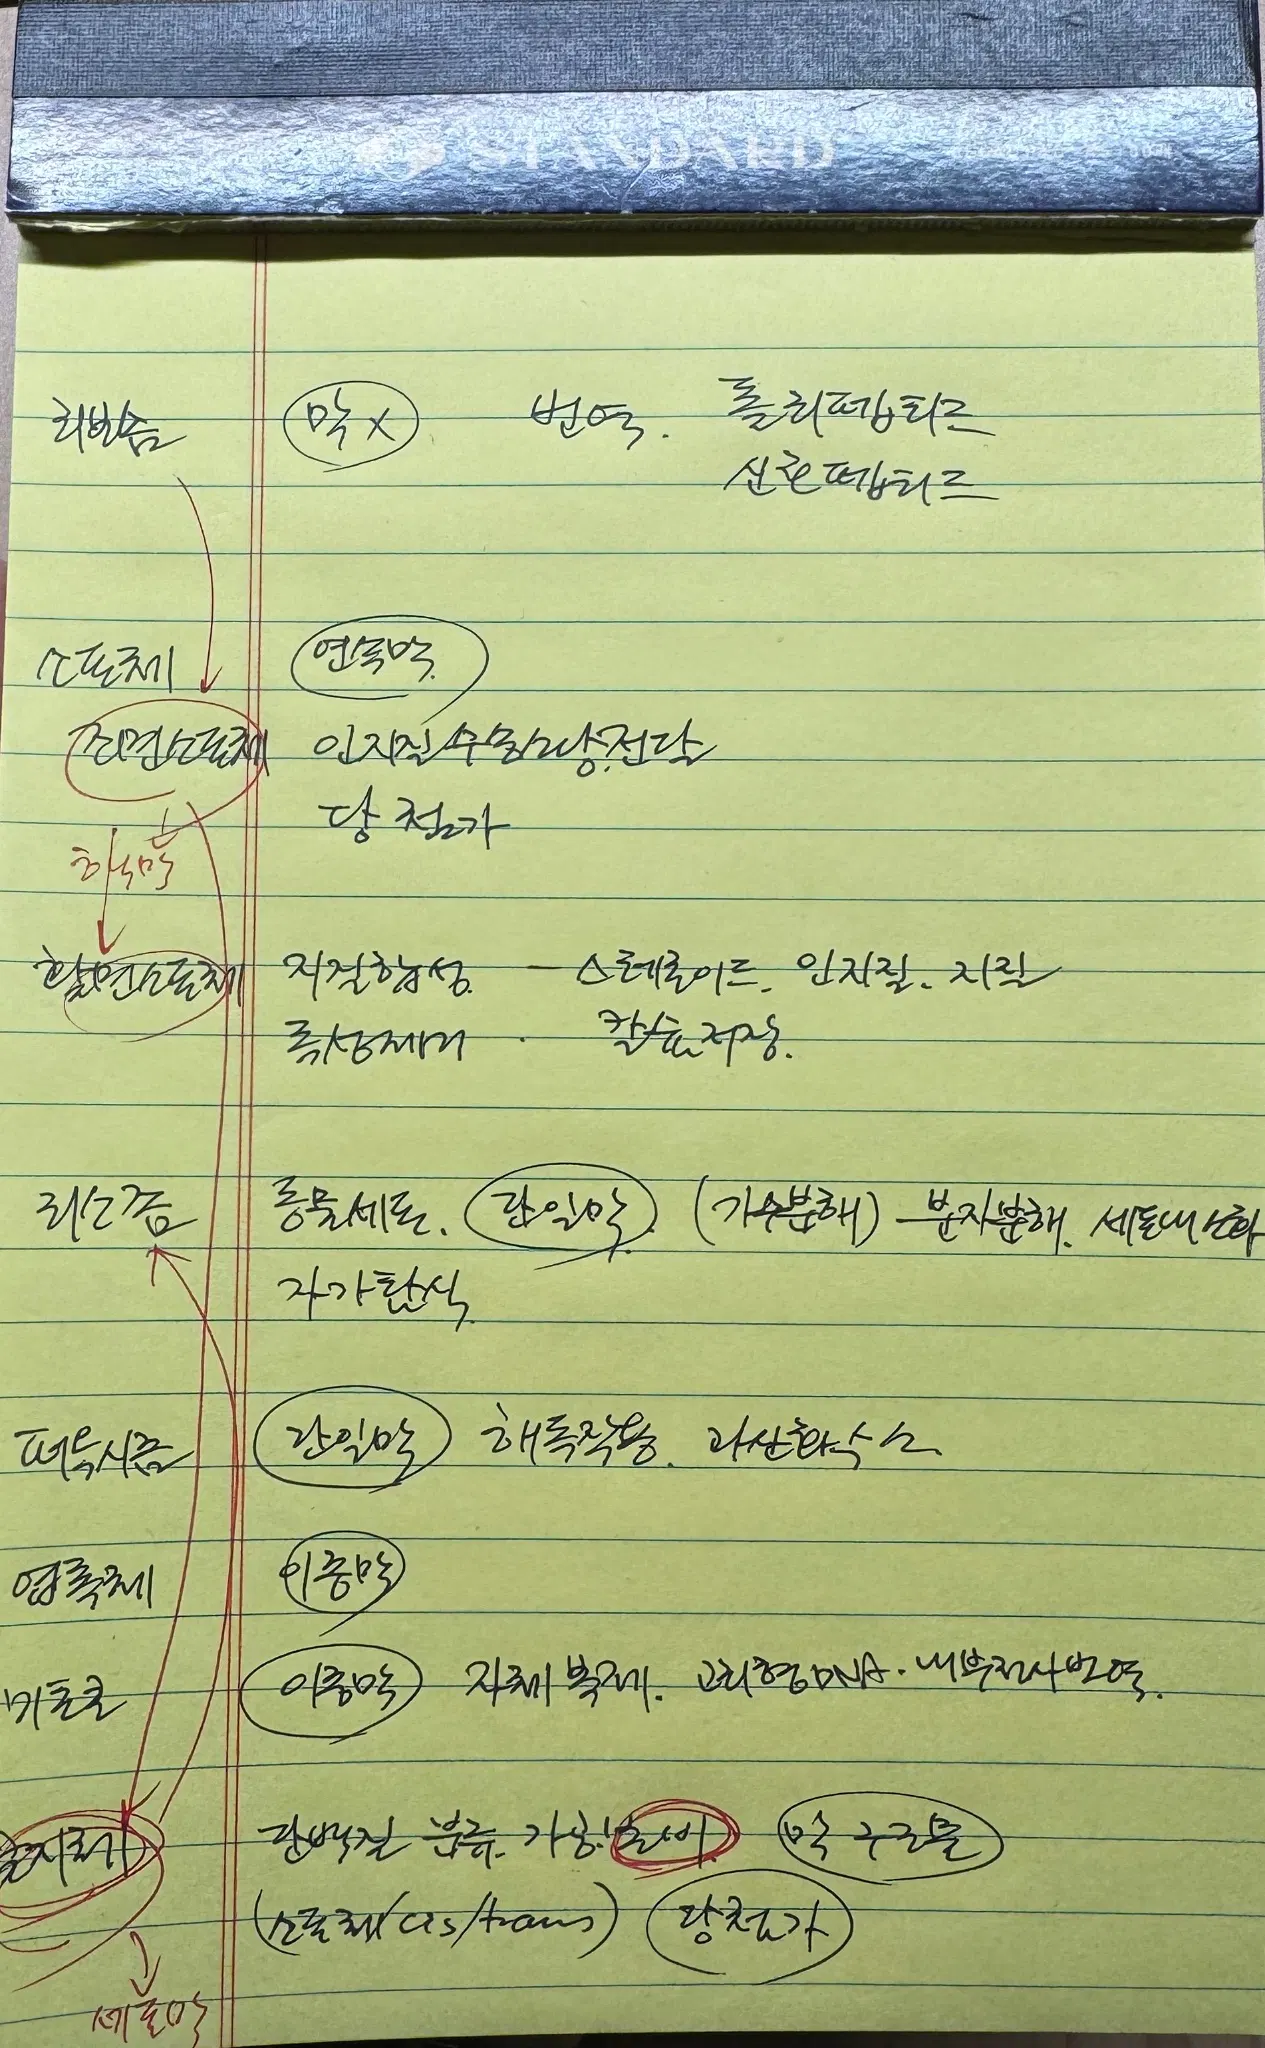 STANDARD
리보솜 막X 번역. 폴리펩티드
신호펩티드
소포체 연속막.
조면소포체 인지질/수송소낭.전달
당 첨가
핵막
활면소포체 지질합성. — 스테로이드. 인지질. 지질
독성제거 · 칼슘저장.
리소좀 동물세포. 단일막. (가수분해) — 분자분해. 세포내소화
자가탐식.
퍼옥시좀 단일막 해독작용. 과산화수소.
엽록체 이중막
미토콘 이중막 자체복제. 고리형DNA. 내부전사번역.
골지체 단백질 분류. 가공! 분비. 막 구조물
(소포체/cis/trans) 당첨가
세포막